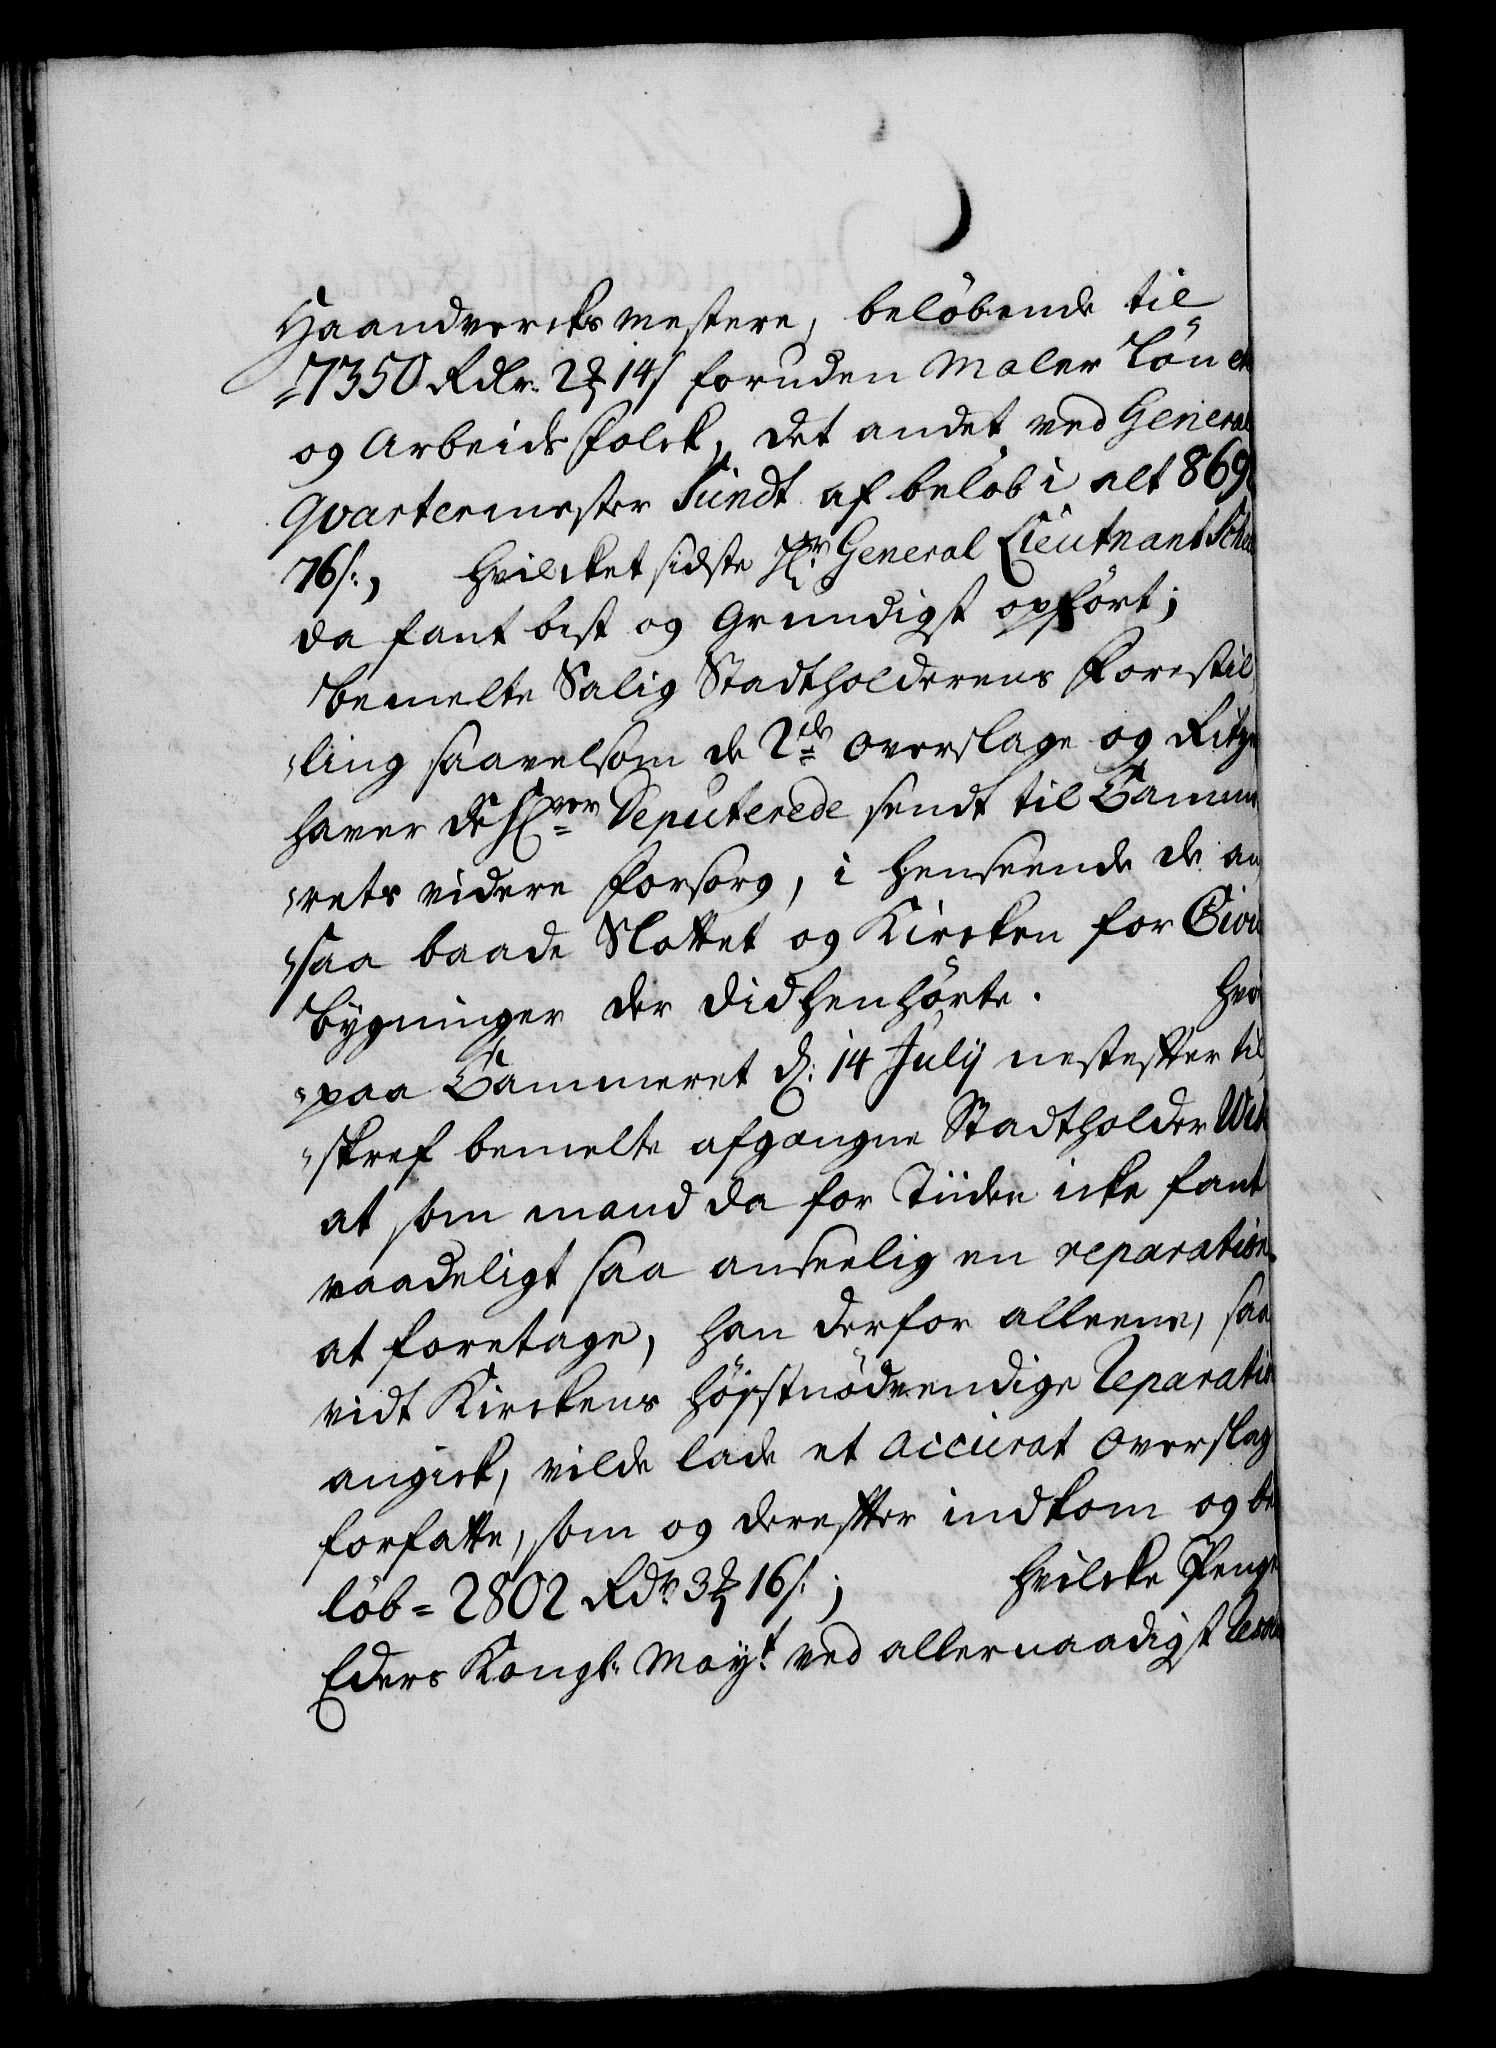 Haandvercks mestere, beløbende til
=7350 Rdlr. 2 ₰ 14 s foruden Maler Løn
og Arbeids folck, det andet ved General
Qvartermester Sundt af beløb i alt 869
76 s:, hvilcket sidste Hr. General Lieutnant
da fant best og Grundigst opført;
bemelte Salig Stadtholderens Forestil
"ling saavelsom de 2de Overslage og
haver de Hrer Deputerede sendt til Camme
"rets videre Forsorg, i henseende de an
"saa baade Slottet og Kircken for Civil
bygninger der didhenhørte.
"paa Cammeret d: 14 July nestefter til
"skref bemelte afgangne Stadtholder
at som mand da for Tiiden icke fant
raadeligt saa anseelig en reparation
at foretage, han derfor alleene, saa
vidt Kirckens højstnødvendige Reparation
angick, vilde lade et accurat Overslag
forfatte, som og derefter indkom og be
løb = 2802 Rdr 3 ₰ 16 s:; hvilcke Penge
Eders Kongl: Mayt: ved allernaadigst